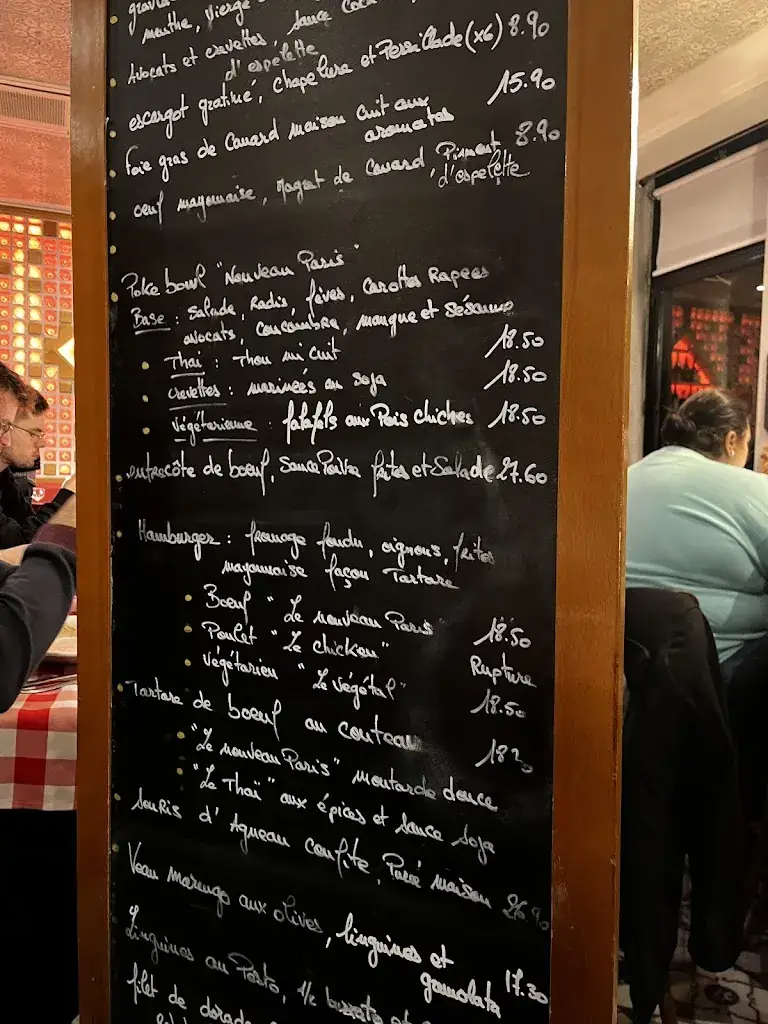 menthe, Vierge
Avocats et crevettes, sauce
d'espelette
escargot gratiné, chapelure et Persillade (x6) 8.90
Foie gras de Canard maison cuit aux 15.90
aromates
oeuf mayonnaise, Magret de Canard, Piment 8.90
d'espelette
Poke bowl "Nouveau Paris"
Base : Salade, Radis, fèves, Carottes Rapées
avocats, concombre, mangue et Sésame
Thai : Thon mi cuit 18.50
crevettes : marinées au soja 18.50
Végétarienne : falafels aux Pois chiches 18.50
entrecôte de boeuf, Sauce Poivre frites et Salade 27.60
Hamburger : fromage fondu, oignons, frites
mayonnaise façon Tartare
Boeuf "Le nouveau Paris" 18.50
Poulet "Le chicken" Rupture
Végétarien "Le végétal" 18.50
Tartare de boeuf au couteau
"Le nouveau Paris" moutarde douce
"Le Thaï" aux épices et sauce soja
Souris d'Agneau confite, Purée maison 26.90
Veau marengo aux olives, linguines et 17.30
gremolata
Linguines au Pesto, 1/2 burrata et
filet de dorade